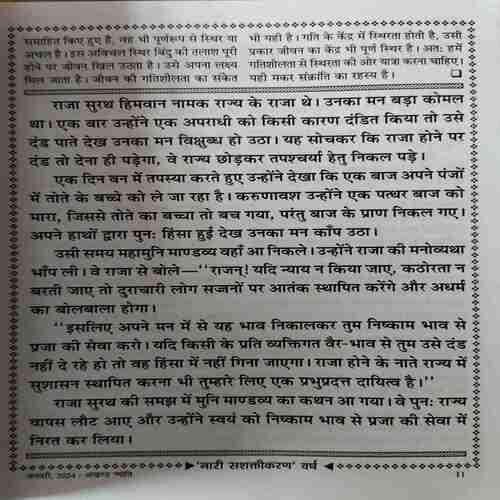 समाहित किए हुए है, वह भी पूर्णरूप से स्थिर या
अचल है। इस अविचल स्थिर बिंदु की तलाश पूरी
होने पर जीवन खिल उठता है। उसे अपना लक्ष्य
मिल जाता है। जीवन की गतिशीलता का संकेत
भी यही है। गति के केंद्र में स्थिरता होती है, उसी
प्रकार जीवन का केंद्र भी पूर्ण स्थिर है। अतः हमें
गतिशीलता से स्थिरता की ओर यात्रा करना चाहिए।
यही मकर संक्रांति का रहस्य है।
राजा सुरथ हिमवान नामक राज्य के राजा थे। उनका मन बड़ा कोमल
था। एक बार उन्होंने एक अपराधी को किसी कारण दंडित किया तो उसे
दंड पाते देख उनका मन विक्षुब्ध हो उठा। यह सोचकर कि राजा होने पर
दंड तो देना ही पड़ेगा, वे राज्य छोड़कर तपश्चर्या हेतु निकल पड़े।
एक दिन वन में तपस्या करते हुए उन्होंने देखा कि एक बाज अपने पंजों
में तोते के बच्चे को ले जा रहा है। करुणावश उन्होंने एक पत्थर बाज को
मारा, जिससे तोते का बच्चा तो बच गया, परंतु बाज के प्राण निकल गए।
अपने हाथों द्वारा पुनः हिंसा हुई देख उनका मन काँप उठा।
उसी समय महामुनि माण्डव्य वहाँ आ निकले। उन्होंने राजा की मनोव्यथा
भाँप ली। वे राजा से बोले—‘‘राजन्! यदि न्याय न किया जाए, कठोरता न
बरती जाए तो दुराचारी लोग सज्जनों पर आतंक स्थापित करेंगे और अधर्म
का बोलबाला होगा।
‘‘इसलिए अपने मन में से यह भाव निकालकर तुम निष्काम भाव से
प्रजा की सेवा करो। यदि किसी के प्रति व्यक्तिगत वैर-भाव से तुम उसे दंड
नहीं दे रहे हो तो वह हिंसा में नहीं गिना जाएगा। राजा होने के नाते राज्य में
सुशासन स्थापित करना भी तुम्हारे लिए एक प्रभुप्रदत्त दायित्व है।’’
राजा सुरथ की समझ में मुनि माण्डव्य का कथन आ गया। वे पुनः राज्य
वापस लौट आए और उन्होंने स्वयं को निष्काम भाव से प्रजा की सेवा में
निरत कर लिया।
‘नारी सशक्तीकरण’ वर्ष
जनवरी, 2024 : अखण्ड ज्योति
11